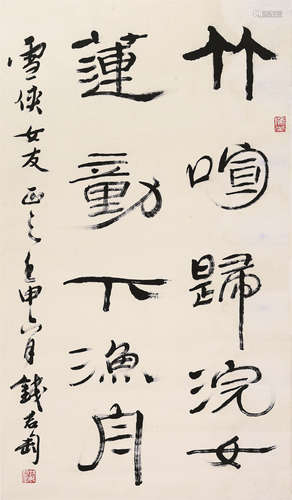 竹喧歸浣女
蓮動下漁舟
雪俠女友正之壬申六月錢君匋